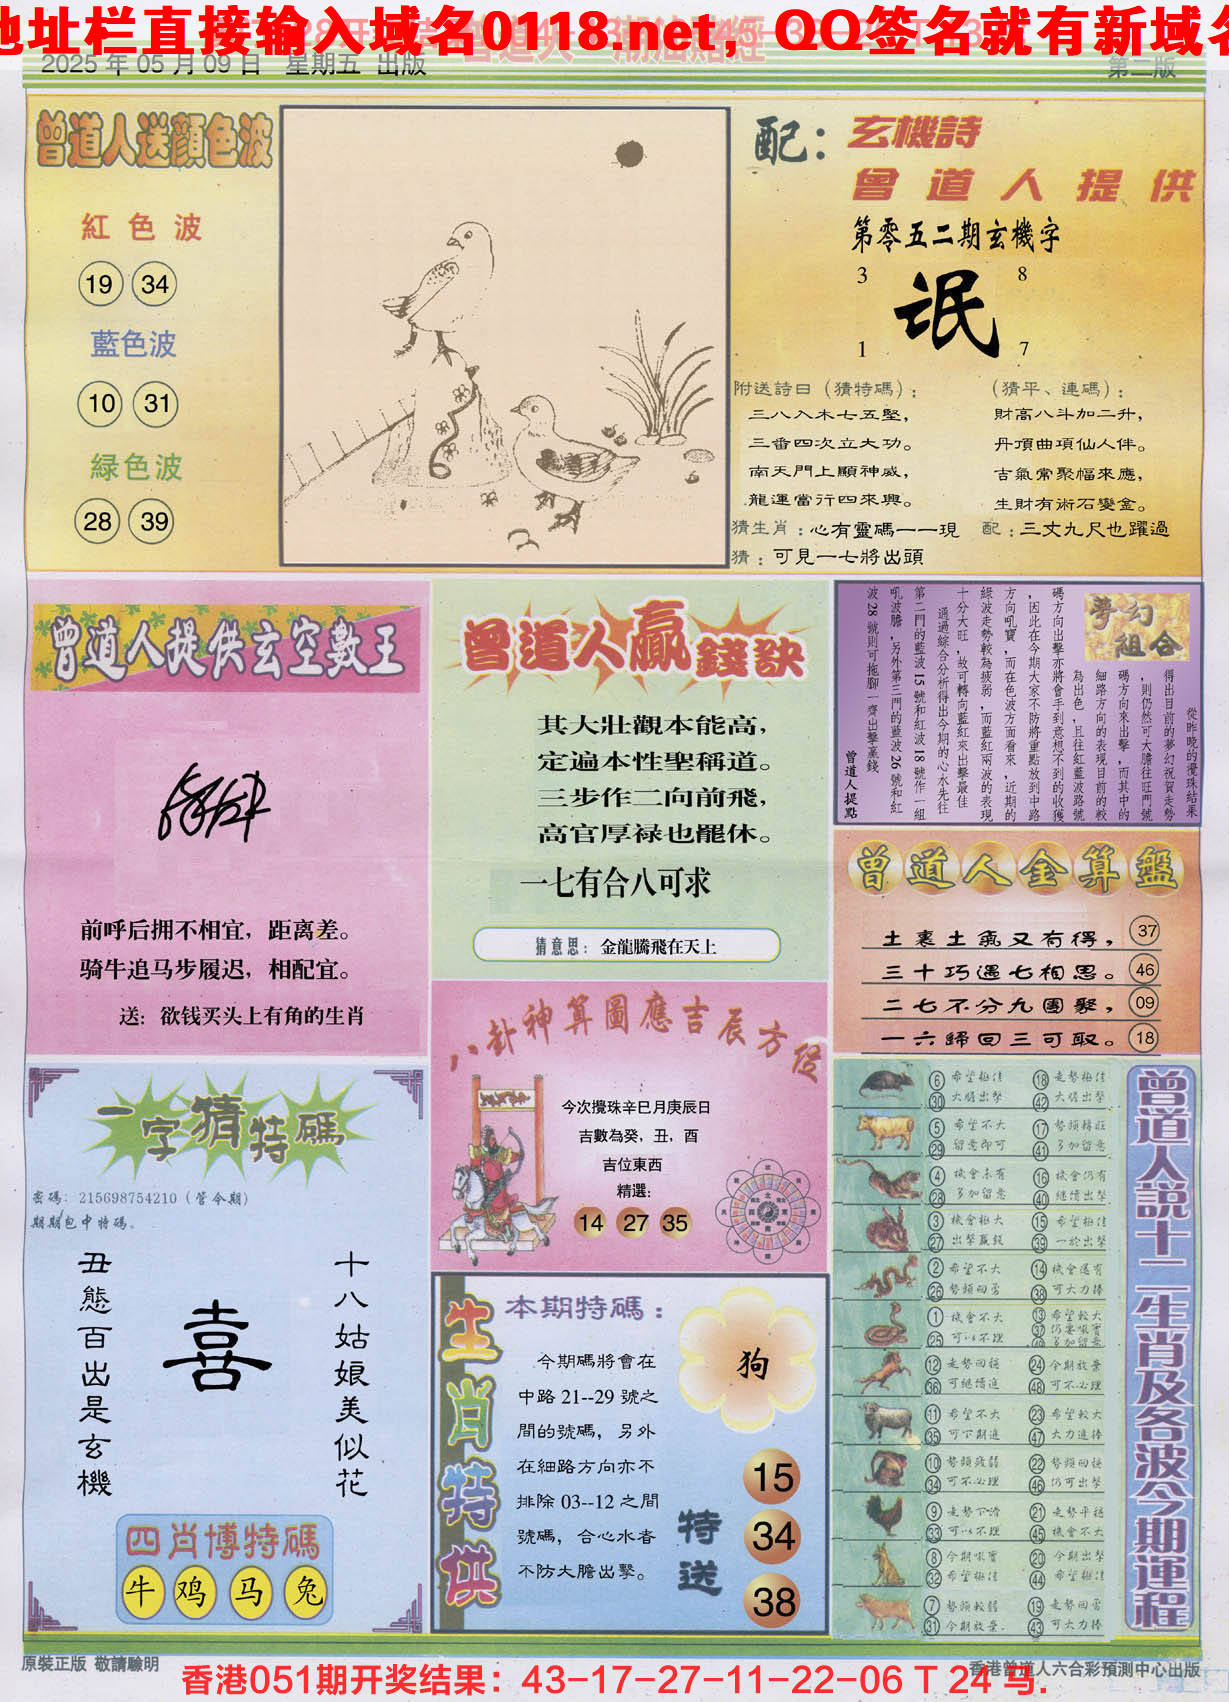 地址栏直接输入域名0118.net，QQ签名就有新域名
2025 年 05 月 09 日 星期五 出版
第二版
曾道人送顏色波
紅色波
19 34
藍色波
10 31
緑色波
28 39
配：
玄機詩
曾道人提供
第零五二期玄機字
3 8
氓
1 7
附送詩曰（猜特碼）：
三八入木七五堅，
三番四次立大功。
南天門上顯神威，
龍運當行四來興。
（猜平、連碼）：
財高八斗加二升，
丹頂曲項仙人伴。
吉氣常聚幅來應，
生財有術石變金。
猜生肖：心有靈碼一一現
配：三丈九尺也躍過
猜：可見一七將出頭
曾道人提供玄空數王
前呼后拥不相宜，距离差。
骑牛追马步履迟，相配宜。
送：欲钱买头上有角的生肖
曾道人贏錢訣
其大壯觀本能高，
定遍本性聖稱道。
三步作二向前飛，
高官厚禄也罷休。
一七有合八可求
猜意思：金龍騰飛在天上
夢幻組合
從昨晚的攪珠結果
得出目前的夢幻祝賀走勢
，則仍然可大膽往旺門號
碼方向來出擊，而其中的
細路方向的表現目前的較
為出色，且往紅藍波路號
碼方向出擊亦將會手到意想不到的收獲
，因此在今期大家不防將重點放到中路
方向吼寶，而在色波方面看來，近期的
綠波走勢較為疲弱，而藍紅兩波的表現
十分大旺，故可轉向藍紅來出擊最佳
通過綜合分析得出今期的心水先往
第二門的藍波 15 號和紅波 18 號作一組
吼波膽，另外第三門的藍波 26 號和紅
波 28 號則可拖腳一齊出擊贏錢
曾道人提點
曾道人金算盤
土裏土氣又有得， 37
三十巧遇七相思。 46
二七不分九團聚， 09
一六歸回三可取。 18
八卦神算圖應吉辰方位
今次攪珠辛巳月庚辰日
吉數為癸，丑，酉
吉位東西
精選：
14 27 35
一字猜特碼
密碼：215698754210（管令期）
期期包中特碼。
十八姑娘美似花
喜
丑態百出是玄機
四肖博特碼
牛 鸡 马 兔
生肖特供
本期特碼：
今期碼將會在
中路 21--29 號之
間的號碼，另外
在細路方向亦不
排除 03--12 之間
號碼，合心水者
不防大膽出擊。
狗
特送
15
34
38
曾道人說十二生肖及各波今期運程
6 30 希望極佳 大膽出擊 18 42 走勢極佳 大膽出擊
5 29 希望不大 留意即可 17 41 勢頭轉旺 多加留意
4 28 機會未有 多加留意 16 40 機會仍有 繼續出擊
3 27 機會極大 出擊贏錢 15 39 希望極佳 一於出擊
2 26 希望不大 勢頭回勇 14 38 機會還有 可大力捧
1 25 機會不大 可以不理 13 37 49 希望較大 仍要吼實 多加留意
12 36 走勢回穩 可繼續追 24 48 今期放棄 可不必理
11 35 希望不大 可下期追 23 47 希望較大 大力追捧
10 34 勢頭疲弱 可不必理 22 46 勢頭回穩 仍可出擊
9 33 走勢下滑 可以不理 21 45 走勢平穩 機會不大
8 32 今期吼實 希望極佳 20 44 今期出擊 希望極佳
7 31 勢頭較弱 今期放棄 19 43 走勢回勇 可大力捧
原裝正版 敬請驗明
香港曾道人六合彩預測中心出版
香港051期开奖结果：43-17-27-11-22-06 T 24 马.